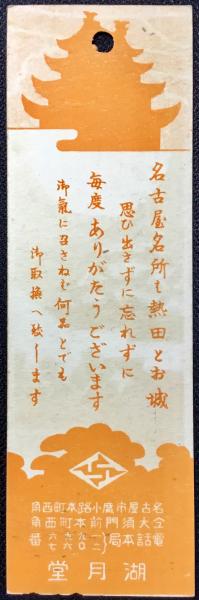 名古屋名所も熱田とお城
思ひ出さずに忘れずに
毎度ありがたうございます
御氣に召さねば何品とでも
御取換へ致します
名古屋市廣小路本町西角
仝大須門前町西角
電話本局
番
湖月堂